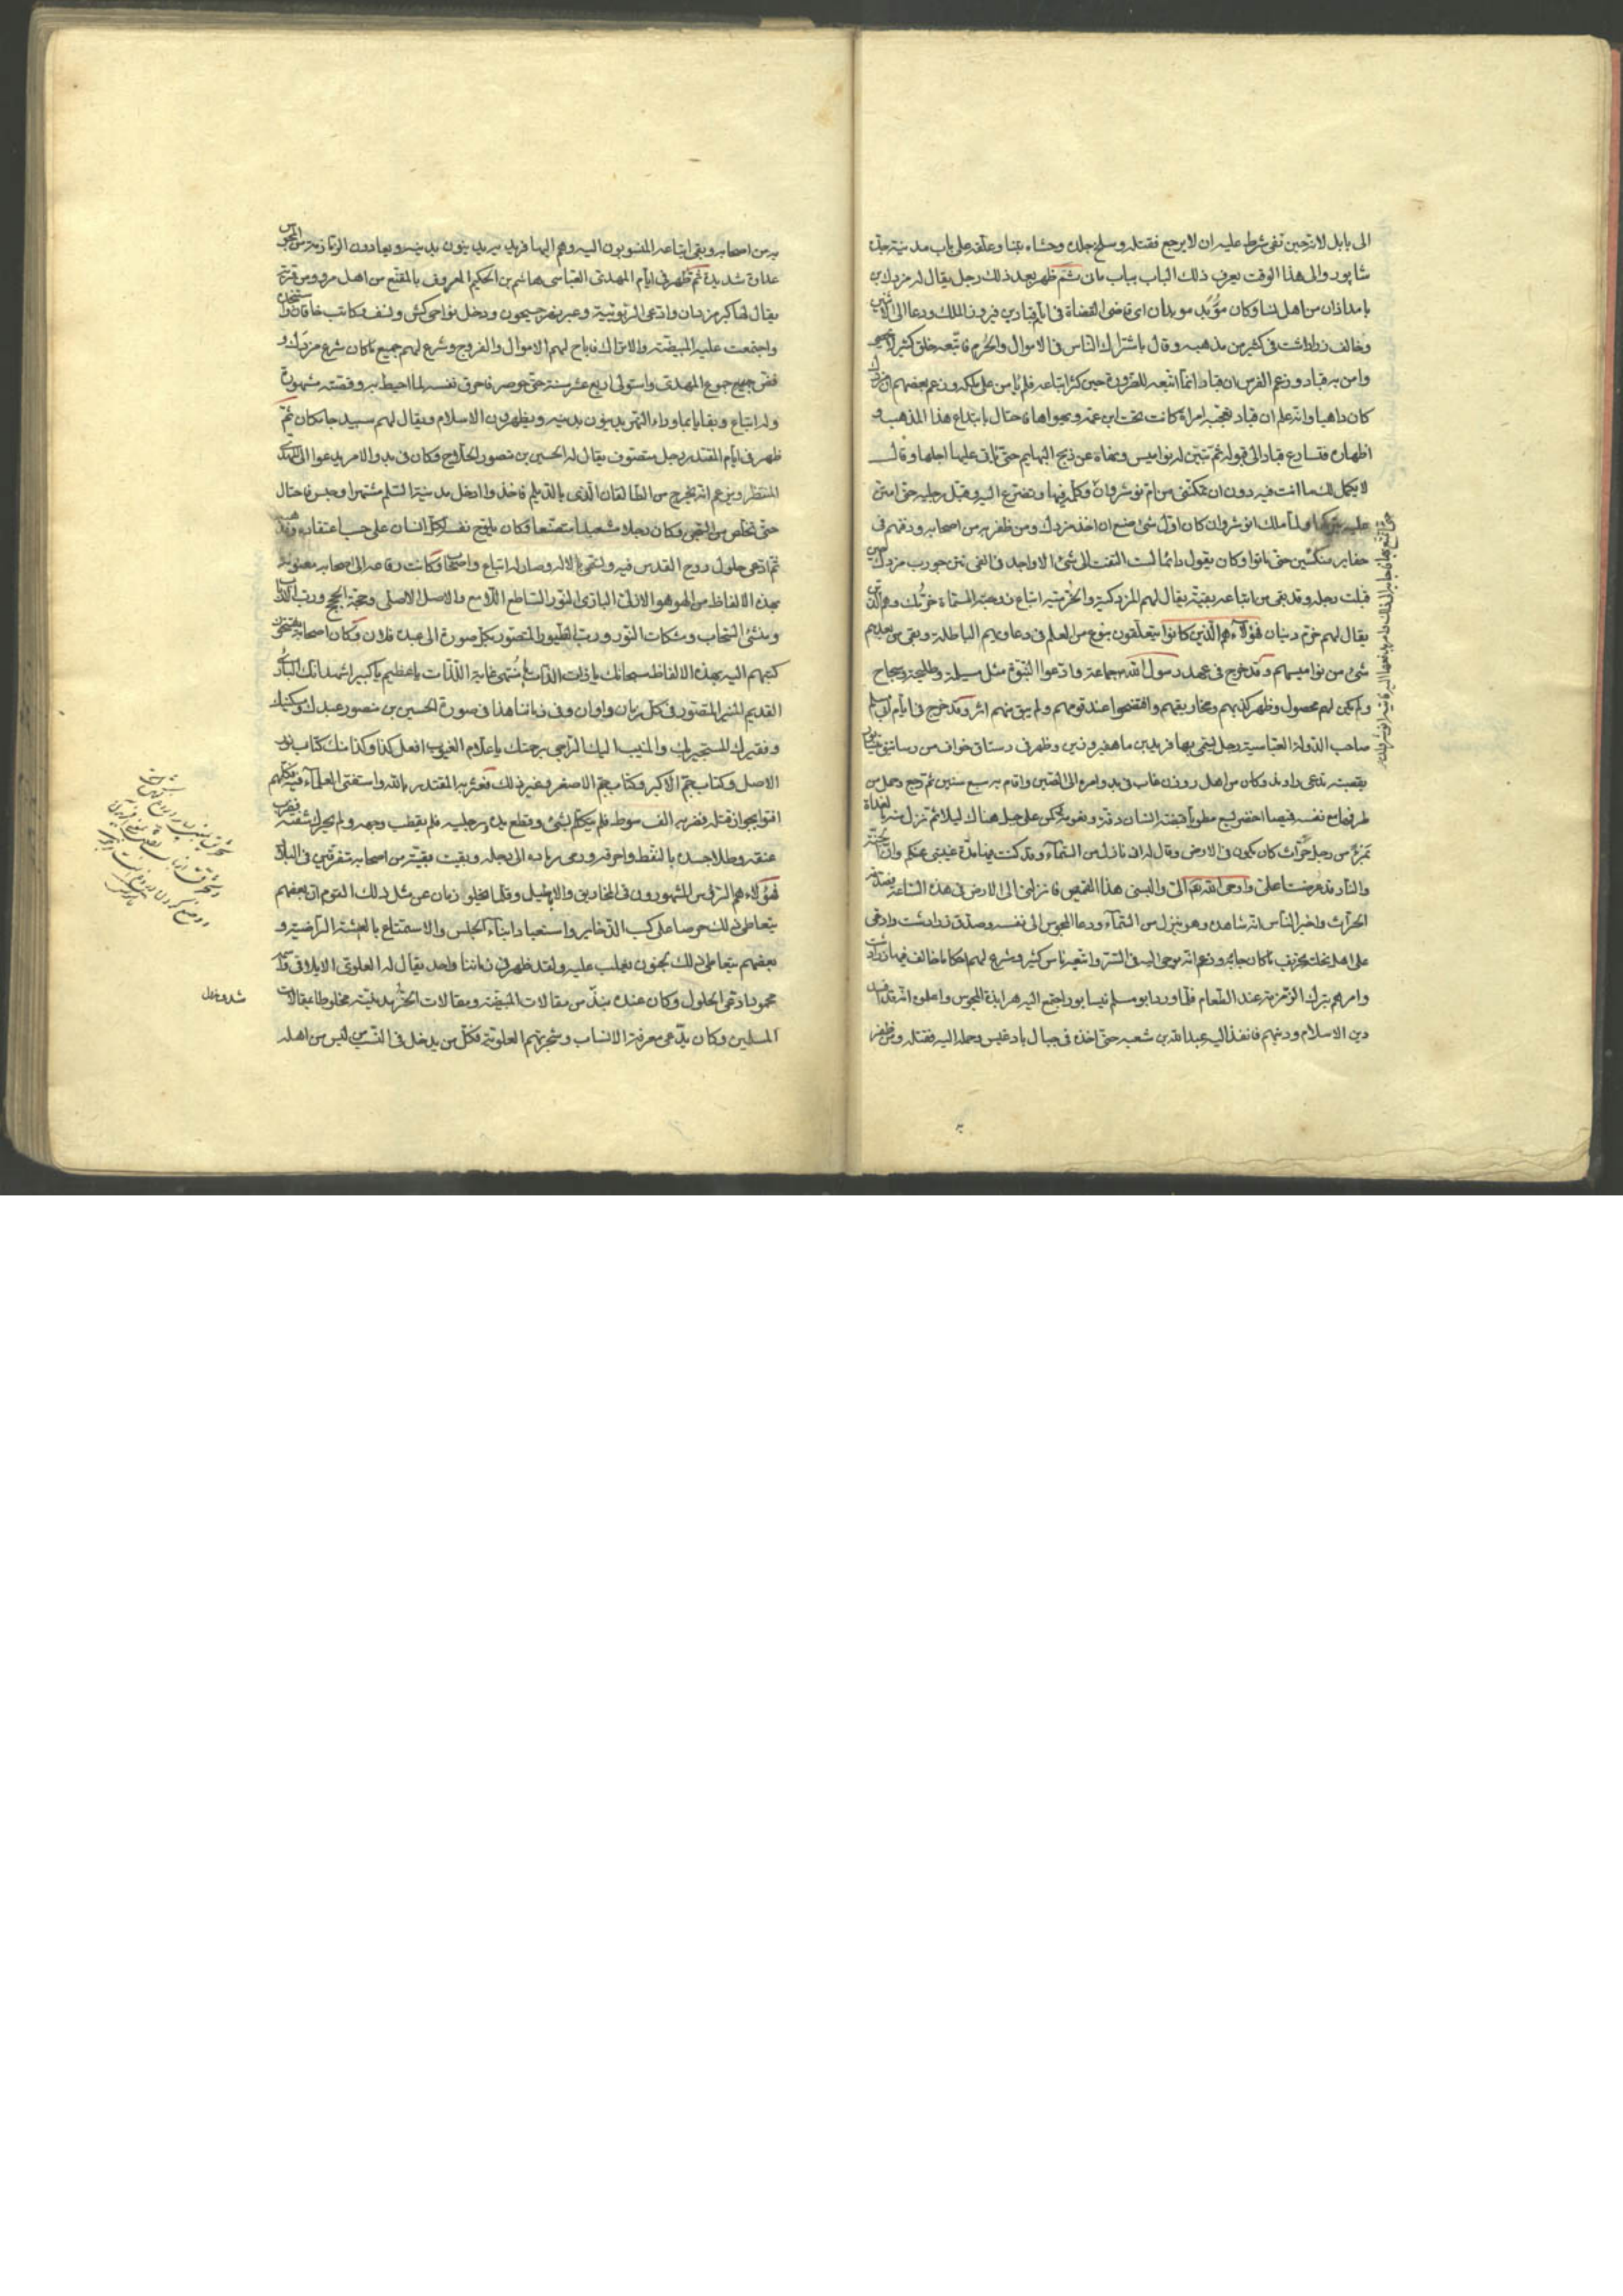 الى بابل لانه حين نفى شرط عليه ان لا يرجع فقتله وسلخ جلده وحشاه تبنا وعلقه على باب مدينة جندى
شاپور والى هذا الوقت يعرف ذلك الباب بباب مانى ثم ظهر بعد ذلك رجل يقال له مزدك بن
بامدادان من اهل نسا وكان موبد موبدان اى قاضى القضاة فى ايام قباد بن فيروز الملك ودعا الى الاثنين
وخالف زرادشت فى كثير من مذهبه وقال باشتراك الناس فى الاموال والحرم فاتبعه خلق كثير
وامن به قباد وزعم الفرس ان قباد انما اتبعه للضرورة حين كثر اتباعه فلم يامن على ملكه وزعم بعضهم ان مزدك
كان داهيا وانه علم ان قباد تعجبه امراة كانت تحت ابن عمه ويهواها فاحتال بابتداع هذا المذهب و
اظهاره فتسارع قباد الى قبوله ثم تبين له نواميس ونهاه عن ذبح البهايم حتى ياتى عليها اجلها وقال
لا يكمل لك ما انت فيه دون ان تمكننى من ام نوشروان وكلمه فيها وتضرع اليه وقبل رجليه حتى امتن
عليه بتركها ولما ملك انوشروان كان اول شى صنع ان اخذ مزدك ومن ظفر به من اصحابه ودفنهم فى
حفاير منكسين حتى ماتوا وكان يقول دائما لست التفت الى شى الا واجد فى انفى نتن جورب مزدك حين
قبلت رجله وقد بقى من اتباعه بقية يقال لهم المزدكية والخرمية اتباع زوجته المسماة خرمك وهم الذين
يقال لهم خرم دينان فهؤلاء هم الذين كانوا يتعلقون بنوع من العلم فى دعاويهم الباطلة وبقى من بعدهم
شى من نواميسهم وقد خرج فى عهد رسول الله جماعة وادعوا النبوة مثل مسيلمة وطليحة وسجاح
ولم يكن لهم محصول وظهر كذبهم ومخاريقهم وافتضحوا عند قومهم ولم يبق منهم اثر وقد خرج فى ايام ابى مسلم
صاحب الدولة العباسية رجل يسمى بهافريد بن ماه فروذين وظهر فى رستاق خواف من رساتيق نيسابور
بقصبة تدعى داوند وكان من اهل زوزن غاب فى بدو امره الى الصين واقام به سبع سنين ثم رجع وحمل من
طرفها مع نفسه قميصا اخضر يسع مطويا قبضة انسان دقة ونعومة كمن على جبل هناك ليلا ثم نزل منه بالغداة
بمرئ من رجل حراث كان يكون فى الارض وقال له انى نازل من السماء وقد كنت فيها مدة غيبتى عنكم وان الجنة
والنار قد عرضتا على واوحى الله الى والبسنى هذا القميص فانزلنى الى الارض فى هذه الساعة فصدقه
الحراث واخبر الناس انه شاهده وهو ينزل من السماء ودعا المجوس الى نفسه وصدق زرادشت وادعى
على اهل نحلته بتحريف ما كان جا به وزعم انه يوحى اليه فى السر واتبعه ناس كثير وشرع لهم احكاما خالف فيها زرادشت
وامرهم بترك الزمزمة عند الطعام فلما ورد ابو مسلم نيسابور اجتمع اليه هرابذة المجوس واعلموه انه قد افسد
دين الاسلام ودينهم فانفذ اليه عبدالله بن شعبة حتى اخذه فى جبال بادغيس وحمله اليه فقتله ومن ظفر
به
به من اصحابه وبقى اتباعه المنسوبون اليه وهم البهافريديه يدينون بدينه ويعادون الزمازمة من المجوس
عداوة شديدة ثم ظهر فى ايام المهدى العباسى هاشم بن الحكيم المعروف بالمقنع من اهل مرو ومن قرية
يقال لها كبر مزدان وادعى الربوبية وعبر نهر جيحون ودخل نواحى كش ونسف وكاتب خاقان واستنجده
واجتمعت عليه المبيضة والاتراك فاباح لهم الاموال والفروج وشرع لهم جميع ما كان شرع مزدك و
فض جميع جموع المهدى واستولى اربع عشر سنة حتى حوصر فاحرق نفسه لما احيط به وقصته مشهورة
وله اتباع وبقايا بما وراء النهر يدينون بدينه ويظهرون الاسلام ويقال لهم سبيد جامكان ثم
ظهر فى ايام المقتدر رجل متصوف يقال له الحسين بن منصور الحلاج وكان فى بدو الامر يدعوا الى المهدى
المنتظر ويزعم انه يخرج من الطالقان الذى بالديلم فاخذ وادخل مدينة السلم مشتهرا وحبس فاحتال
حتى تخلص من السجن وكان رجلا مشعبدا متصنعا وكان يمازج نفسه لكل انسان على حسب اعتقاده ومذهبه
ثم ادعى حلول روح القدس فيه وتسمى بالاله وصار له اتباع واصحاب وكانت رقاعه الى اصحابه معنونة
بهذه الالفاظ من الهو هو الازلى البازى النور الساطع اللامع والاصل الاصلى وحجة الحجج ورب الارباب
ومنشى السحاب ومشكات النور ورب الطور المتصور بكل صورة الى عبده فلان وكان اصحابه يفتتحون
كتبهم اليه بهذه الالفاظ سبحانك يا ذات الذات يا منتهى غاية اللذات يا عظيم يا كبير اشهد انك البارى
القديم المنير المتصور فى كل زمان واوان وفى زماننا هذا فى صورة الحسين بن منصور عبدك ومسكينك
وفقيرك المستجير بك والمنيب اليك الراجى رحمتك يا علام الغيوب افعل كذا وكذا منك كتاب نور
الاصل وكتاب جم الاكبر وكتاب جم الاصغر وغير ذلك فعثر به المقتدر بالله واستفتى العلماء فيه وكلهم
افتوا بجواز قتله فضربه الف سوط فلم يتكلم بشى وقطع يديه ورجليه فلم يقطب وجهه ولم يحرك شفته فضرب
عنقه وطلا جسده بالنفط واحرقه ورمى برماده الى دجلة وبقيت بقية من اصحابه متفرقين فى البلاد
فهؤلاء هم الرؤس المشهورون فى المخاريق والاباطيل وقلما يخلوا زمان عن مثل ذلك القوم ان بعضهم
يتعاطى ذلك حرصا على كسب الذخاير واستعباد ابناء الجنس والاستمتاع بالعيشة الراضية و
بعضهم يتعاطى ذلك بجنون يغلب عليه ولقد ظهر فى زماننا واحد يقال له العلوى الايلاقى وآخر
محمود ادعى الحلول وكان عنده نبذ من مقالات المبيضة ومقالات الخرمدينية مخلوطا بمقالات
المسلمين وكان يدعى معرفة الانساب وشجرتهم العلوية فكل من يدخل فى النسب من ليس من اهله